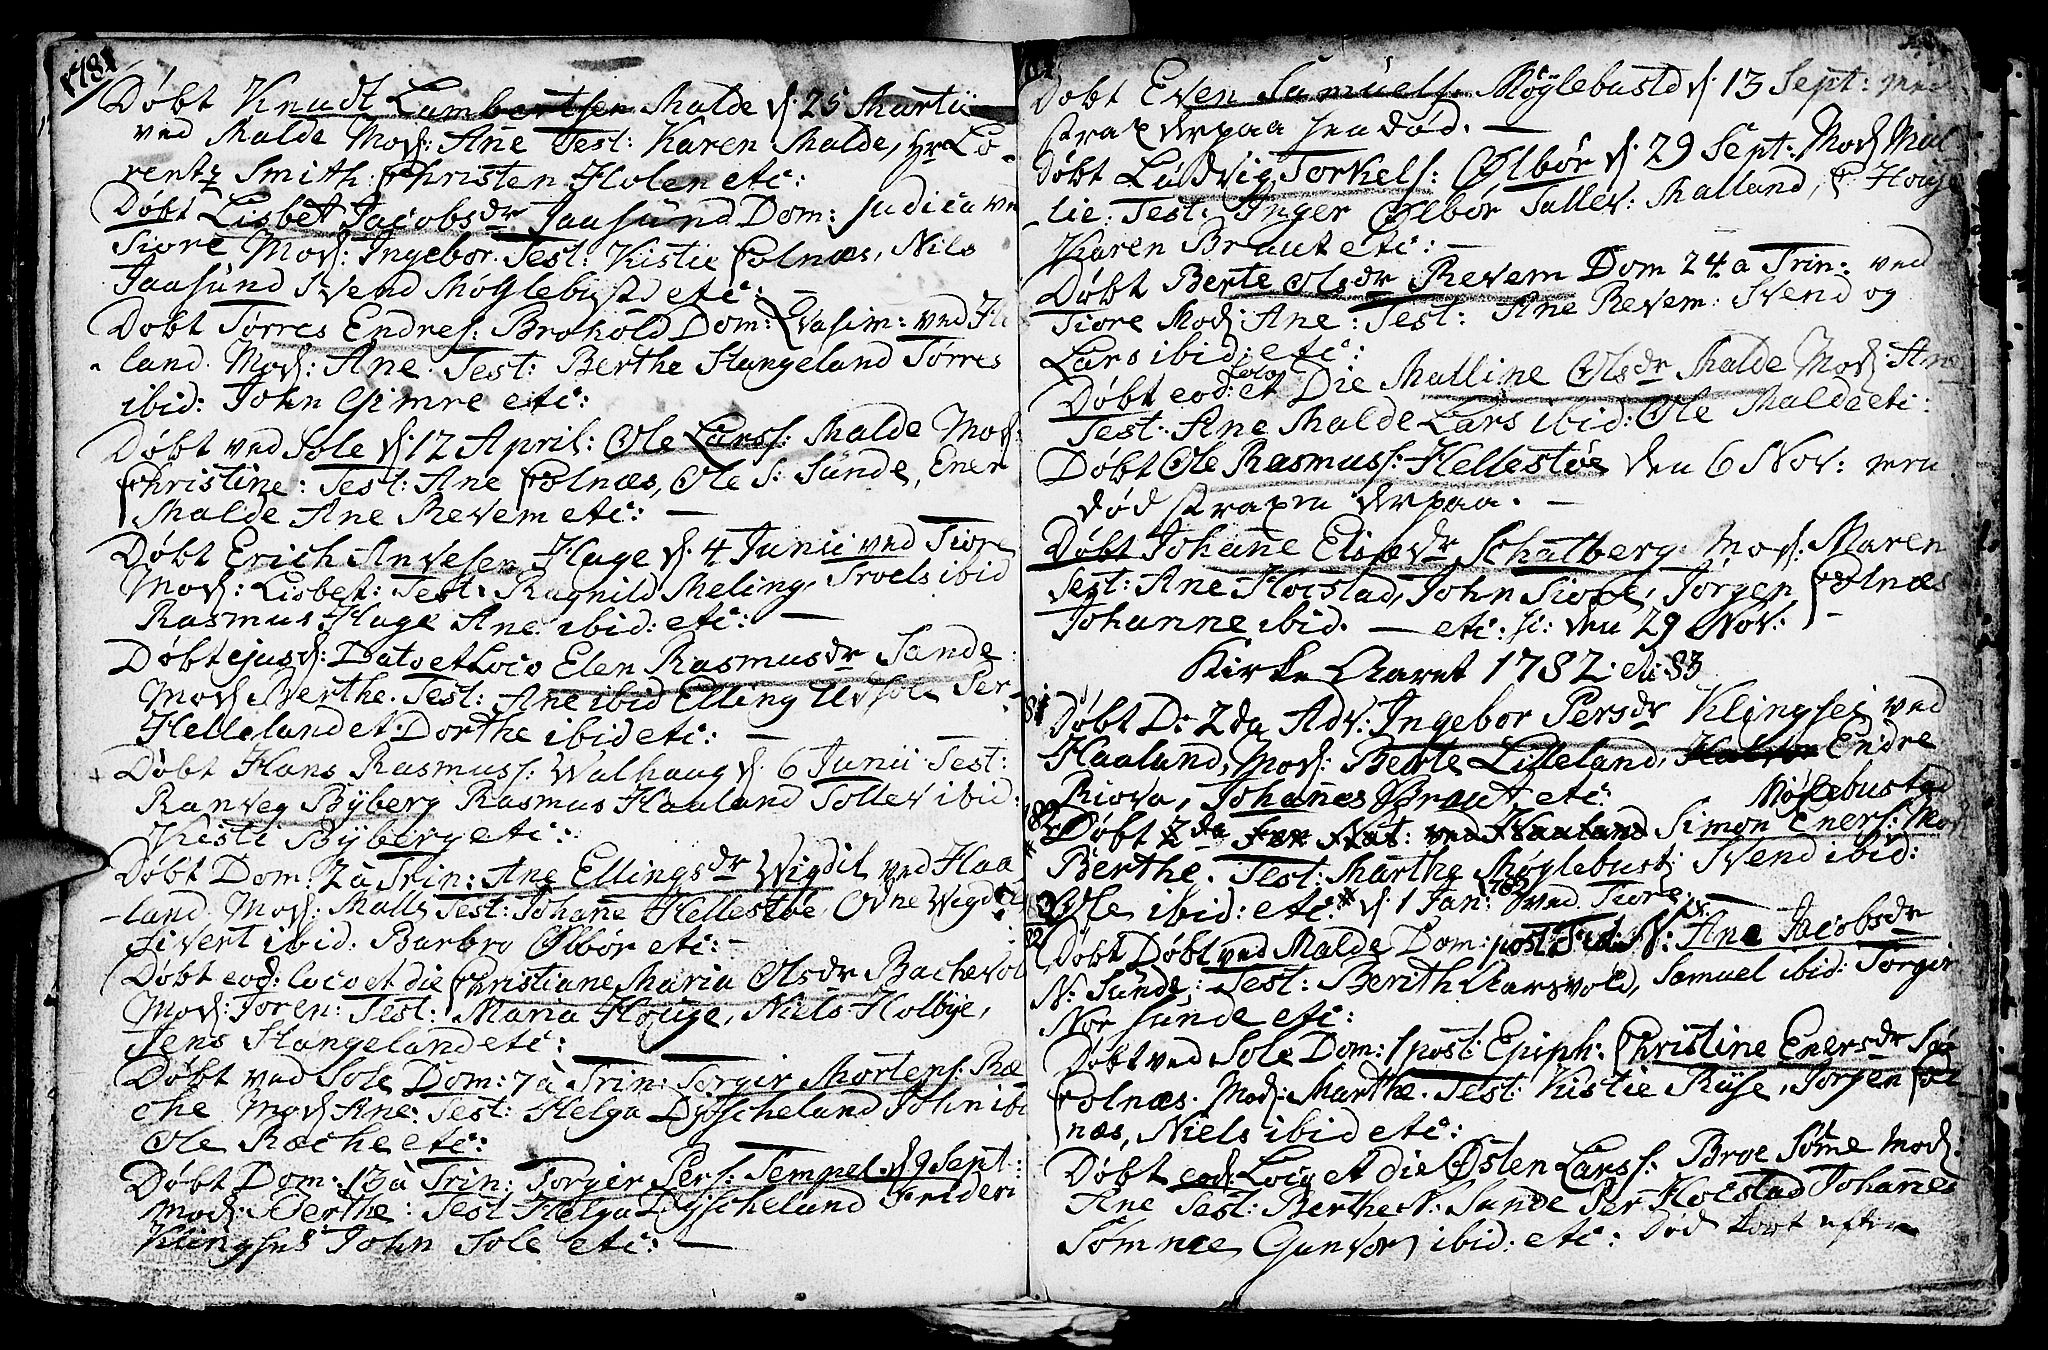 1781
Døbt Knudt Lambertsen Malde d: 25 Martii
ved Malde Mod: Ane Test: Karen Malde, Hr Lo-
rentz Smith: Christen Holen etc:
Døbt Lisbet Jacobsdr Jaasund Dom: Judica ved
Tiore Mod: Ingebor. Test: Kistie Folnæs, Nils
Jaasund Svend Møglebust etc: —
Døbt Tørres Endres: Brohold Dom: Qvasim: ved Ha
land. Mod: Ane. Test: Berthe Stangeland Tørres
ibid: John Gimre etc:
Døbt ved Sole d: 12 April: Ole Larss: Malde Mod:
Christine: Test: Ane Folnæs, Ole S: Sunde, Ener
Malde Ane Revem etc: —
Døbt Erich Anvesen Hage d: 4 Junii ved Tiore
Mod: Lisbet: Test: Ragnild Meling, Troels ibid
Rasmus Hage Ane ibid: etc: —
Døbt ejusd: Dato et Loco Elen Rasmusdr Sande:
Mod Berthe. Test: Ane ibid Elling Uvsole Per
Helleland et: Dorthe ibid etc: —
Døbt Hans Rasmuss: Walhaug d. 6 Junii Test:
Ranveg Byberg Rasmus Haaland Tollev ibid:
Kisti Byberg etc:
Døbt Dom: 2 à Trin: Ane Ellingsdr Wigdil ved Haa
land. Mod: Malli Test: Johane Hellestøe, Odne Wigdel
Sivert ibid: Barbro Ølbør etc: —
Døbt eod: loco et die Christiane Maria Olsdr Bachevol
Mod: Joren: Test: Maria Houge, Niels Holbye,
Jens Stangeland etc:
Døbt ved Sole Dom: 7 à Trin: Torgir Mortens: Ræ
che Mod Ane: Test: Helga Dyscheland John ibi
Ole Ræche etc:
Døbt Dom: 13 à Trin: Torger Pers: Tempel d 9 Sept:
Mod: Berthe: Test Helga Dyscheland Frideri
Klingsus John Sole etc: —
81
Døbt Even Samuels: Møglebust d: 13 Sept: men
strax derpaa hendød. —
Døbt Ludvig Torkels: Ølbør d: 29 Sept: Mod Mal
lie: Test: Inger Ølbør Tallev: Malland, P. Houge
Karen Braut etc: —
Døbt Berte Olsdr Revem Dom 24 a Trin: ved
Tiore Mod: Ane: Test: Ane Revem: Svend og
Lars ibid: etc:
Døbt eod: Loco et Die Malline Olsdr Malde Mod: Ane
Test: Ane Malde Lars ibid: Ole Malde etc:
Døbt Ole Rasmuss: Hellestøe den 6 Nov: men
død straxen derpaa. —
Døbt Johane Elisedr Schatberg. Mod: Maren
Test: Ane Hocstad, John Tiore, Jørgen Folnæs
Johanne ibid. — etc: d: den 29 Nov: —
Kirke Aaret 1782. et: 83
81 Døbt D: 2da Adv: Ingebor Persdr Klingsei ved
Haaland, Mod: Berte Lilleland, Endre
Riova, Johanes Braut etc:
Møglebustad
82 Døbt 2da Nat: ved Haaland Simon Eners: Mod
Berthe. Test: Marthe Møglebust Svend ibid:
Ole ibid: etc. * d: 1 Jan: 1782 ved Tiore. —
82 Døbt Døbt ved Malde Dom: post N: Ane Jacobsdr
N: Sunde: Test: Berith Aarsvold, Samuel ibid: Torgir
Nor Sunde etc:
Døbt ved Sole Dom: 1 post: Epiph: Christine Enersdr Sør
Folnæs. Mod: Marthe. Test: Kistie Ryse, Jorgen Fol
næs, Niels ibid etc:
Døbt eod: Loco et die Østen Larss: Broe Sømme Mod:
Ane Test: Berthe N: Sunde Per Hocstad Johanes
Sømme, Gunvor ibid: etc: Død kort efter